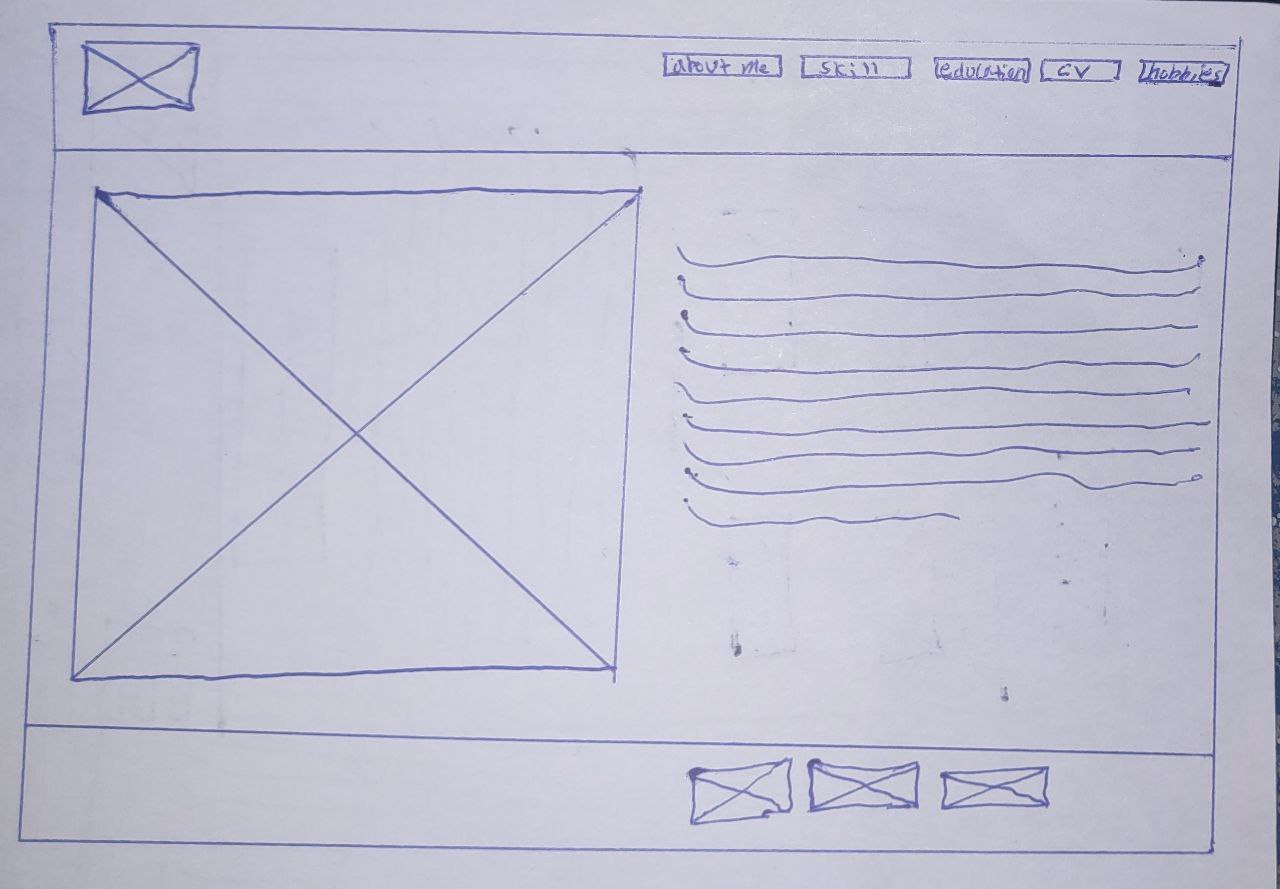 about me
skill
edulation
cv
hobbies